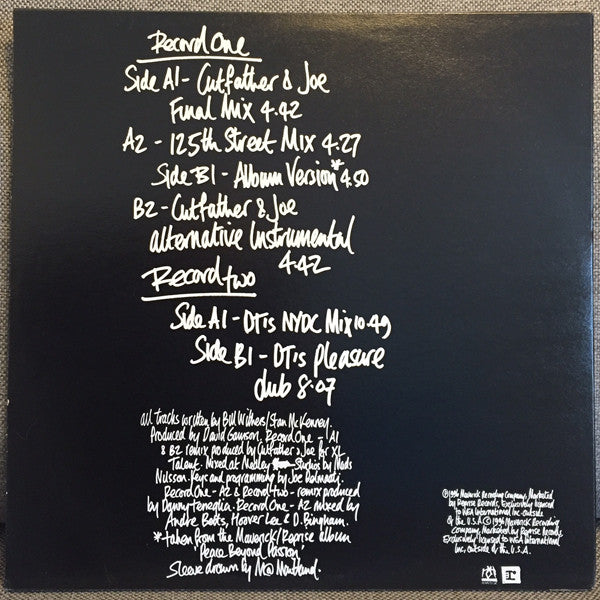 Record One
Side A1 - Cutfather & Joe
Final Mix 4.42
A2 - 125th Street Mix 4.27
Side B1 - Album Version* 4.50
B2 - Cutfather & Joe
alternative Instrumental
4.42
Record two
Side A1 - DT's NYDC Mix 10.49
Side B1 - DT's pleasure
dub 8.07
all tracks written by Bill Withers/Stan McKenney.
Produced by David Gamson. Record One - A1
& B2 remix produced by Cutfather & Joe for XL
Talent. Mixed at Medley Studios by Mads
Nilsson. Keys and programming by Joe Belmaati.
Record One - A2 & Record two - remix produced
by Danny Tenaglia. Record One - A2 mixed by
Andre Betts, Hoover Lee & D. Bingham.
*taken from the Maverick/Reprise album
'Peace Beyond Passion'
Sleeve drawn by M@ Maitland.
℗ 1996 Maverick Recording Company. Marketed
by Reprise Records. Exclusively licensed
to WEA International Inc. outside
of the U.S.A. © 1996 Maverick Recording
company. Marketed by Reprise Records.
Exclusively licensed to WEA International
Inc. outside of the U.S.A.